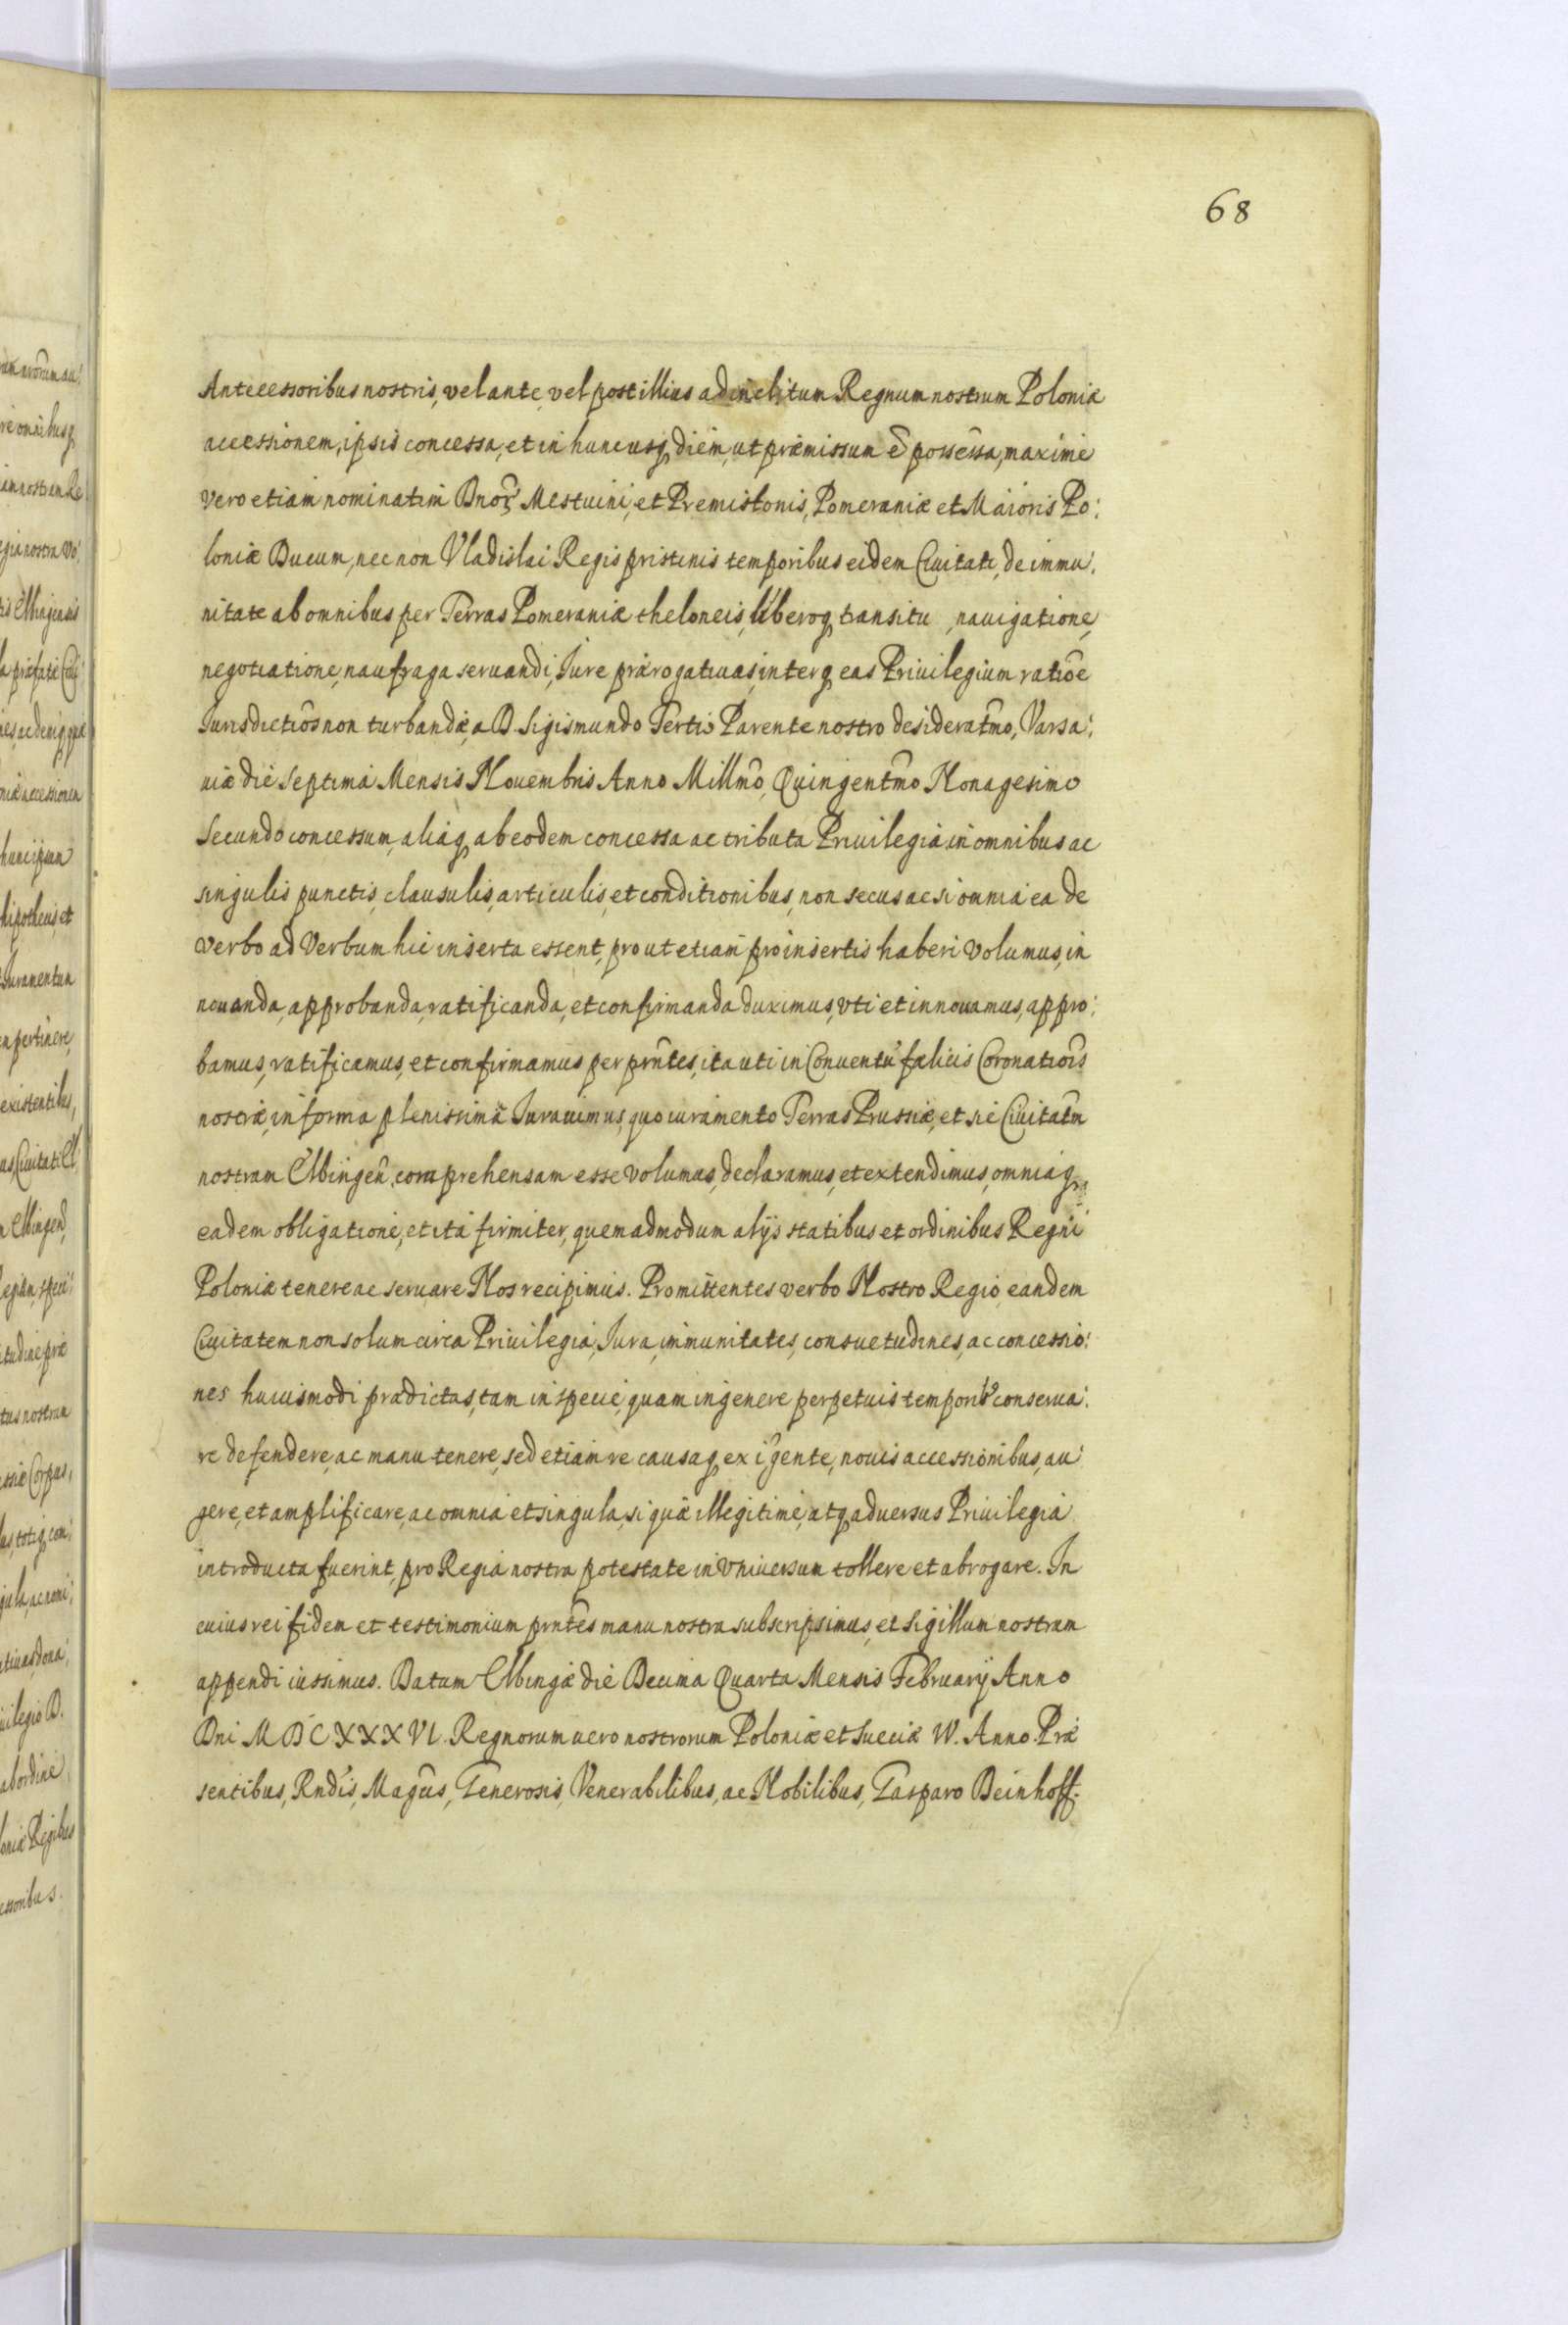 68
Antecessoribus nostris, vel ante, vel post illius ad inclitum Regnum nostrum Poloniæ
accessionem, ipsis concessa, et in huncusq diem, ut præmissum ẽ possessa, maxime
vero etiam nominatim Dnoꝝ Mestuini, et Premislonis, Pomeraniæ et Maioris Po:
loniæ Ducum, nec non Vladislai Regis pristinis temporibus eidem Ciuitati, de immu:
nitate ab omnibus per Terras Pomeraniæ theloneis, liberoq transitu, nauigatione,
negotiatione, naufraga seruandi, Iure prærogatiuas, interq eas Priuilegium ratiõe
Iurisdictiõs non turbandæ, a D. Sigismundo Tertio Parente nostro desideratm̃o, Varsa:
uiæ die Septima Mensis Nouembris Anno Millm̃o, Quingentm̃o Nonagesimo
Secundo concessum, aliaq ab eodem concessa ac tributa Priuilegia in omnibus ac
singulis punctis, clausulis, articulis, et conditionibus, non secus ac si omnia ea de
verbo ad Verbum hic inserta essent, prout etiam pro insertis haberi volumus, in
nouanda, approbanda, ratificanda, et confirmanda duximus, vti et innouamus, appro:
bamus, ratificamus, et confirmamus per prñtes, ita uti in Conuentu fælicis Coronatiõis
nostræ, in forma plenissima Iurauimus, quo iuramento Terras Prussiæ, et sic Ciuitatm̃
nostram Elbingeñ, comprehensam esse volumus, declaramus, et extendimus, omniaq
eadem obligatione, et ita firmiter, quemadmodum alijs statibus et ordinibus Regni
Poloniæ tenere ac seruare Nos recipimus. Promittentes verbo Nostro Regio, eandem
Ciuitatem non solum circa Priuilegia, Iura, immunitates, consuetudines, ac concessio:
nes huiusmodi prædictas, tam in specie, quam in genere perpetuis temporib9 conserua:
re defendere, ac manu tenere, sed etiam re causaq exigente, nouis accessionibus, au:
gere, et amplificare, ac omnia et singula, si quæ illegitime, atq aduersus Priuilegia
introducta fuerint, pro Regia nostra potestate in vniuersum tollere et abrogare. In
cuius rei fidem et testimonium prñtes manu nostra subscripsimus, et Sigillum nostrum
appendi iussimus. Datum Elbingæ die Decima Quarta Mensis February Anno
Dni MDCXXXVI. Regnorum uero nostrorum Poloniæ et Sueciæ IV. Anno. Præ
sentibus, Rndis, Magcis, Generosis, Venerabilibus, ac Nobilibus, Gasparo Deinhoff.